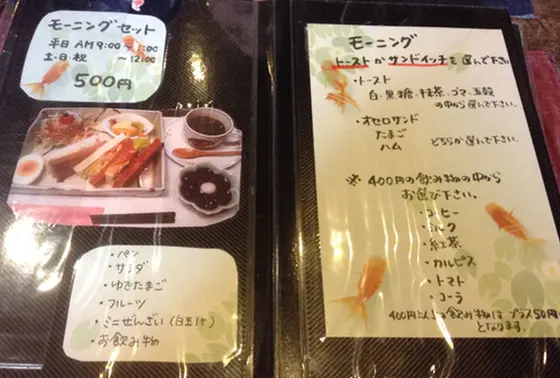 モーニングセット
平日 AM9:00〜11:00
土・日・祝 〜12:00
500円
・パン
・サラダ
・ゆでたまご
・フルーツ
・ミニぜんざい(白玉1ケ)
・お飲み物
モーニング
トーストかサンドイッチを選んで下さい
・トースト
白・黒糖・抹茶・ゴマ・五穀
の中から選んで下さい。
・オセロサンド
たまご
ハム どちらか選んで下さい。
※400円の飲み物の中から
お選び下さい。
・コーヒー
・ミルク
・紅茶
・カルピス
・トマト
・コーラ
400円以上の飲み物はプラス50円
となります。